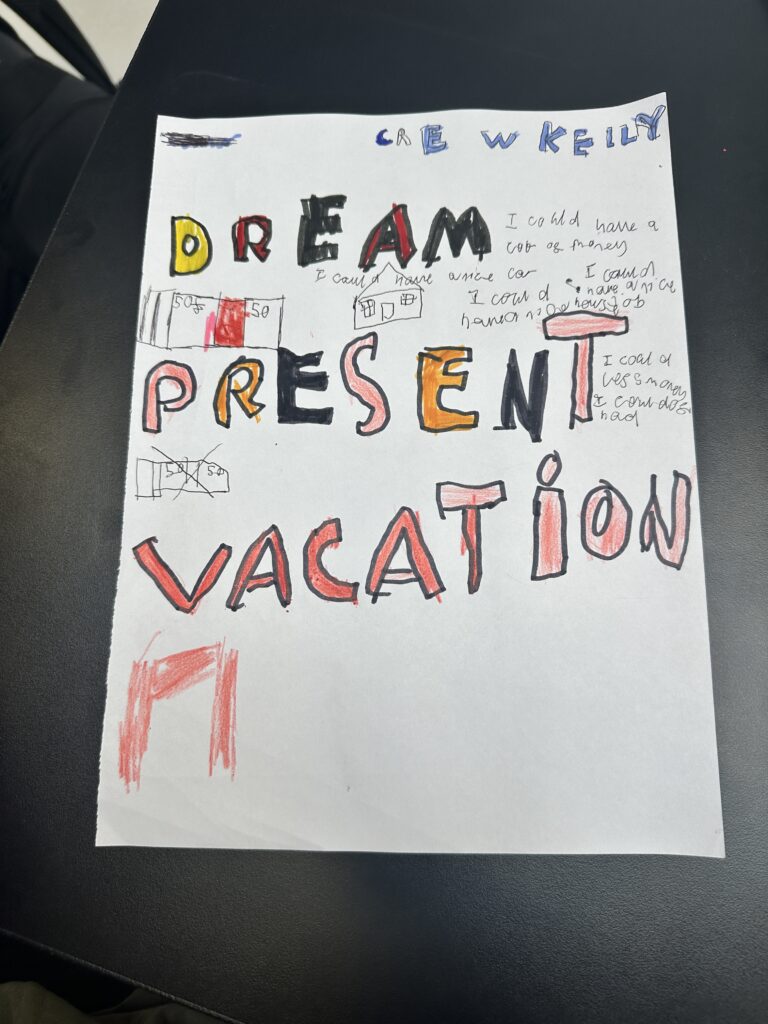 CRE W KEILY
DREAM
I could have a
lot of money
I could have a nice car
I could
have a nice
I could
50£ 50
PRESENT
I could
less money
I could
had
50 50
VACATION